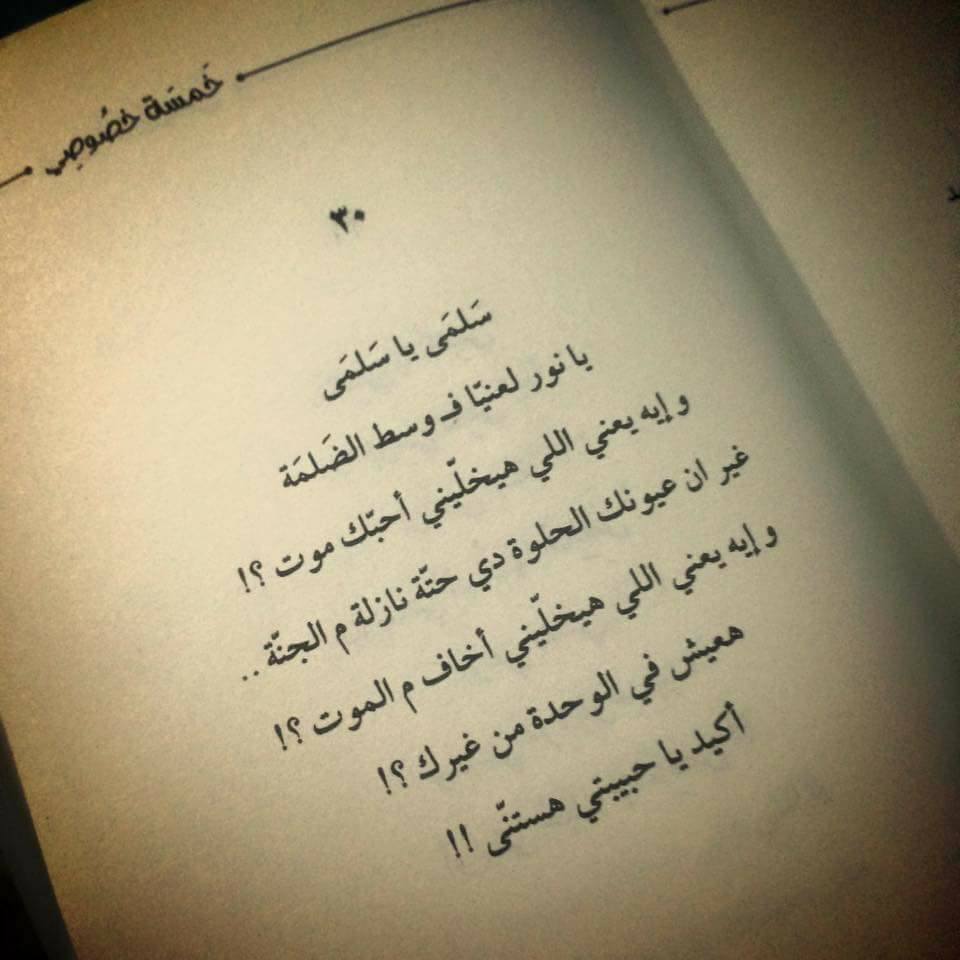 خَمسَة خصُوصِي
٣٠
سَلمَى يا سَلمَى
يا نور لعنيّا فـ وسط الضَلمَة
و إيه يعني اللي هيخلّيني أحبّك موت ؟!
غير ان عيونك الحلوة دي حتّة نازلة م الجنّة ..
و إيه يعني اللي هيخلّيني أخاف م الموت ؟!
هعيش في الوحدة من غيرك ؟!
أكيد يا حبيبتي هستنّى !!